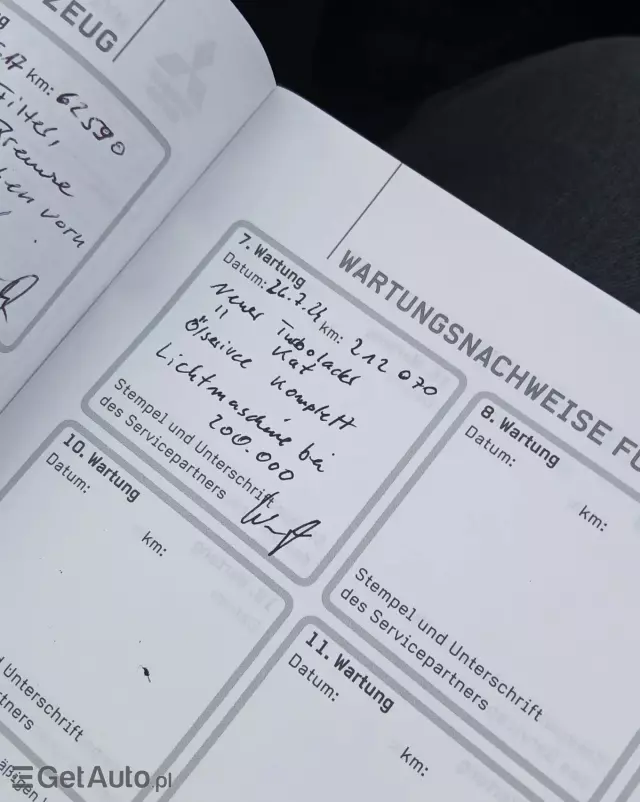 ZEUG
km: 62590
Filter,
Bremse
vorn
WARTUNGSNACHWEISE FÜ
7. Wartung
Datum: 26.7.24 km: 212 070
Neuer Turbolader
" Kat
Ölserivce Komplett
Lichtmaschine bei
200.000
Stempel und Unterschrift
des Servicepartners
8. Wartung
Datum:
km:
Stempel und Unterschrift
des Servicepartners
10. Wartung
Datum:
km:
d Unterschrift
artners
11. Wartung
Datum:
km:
GetAuto.pl